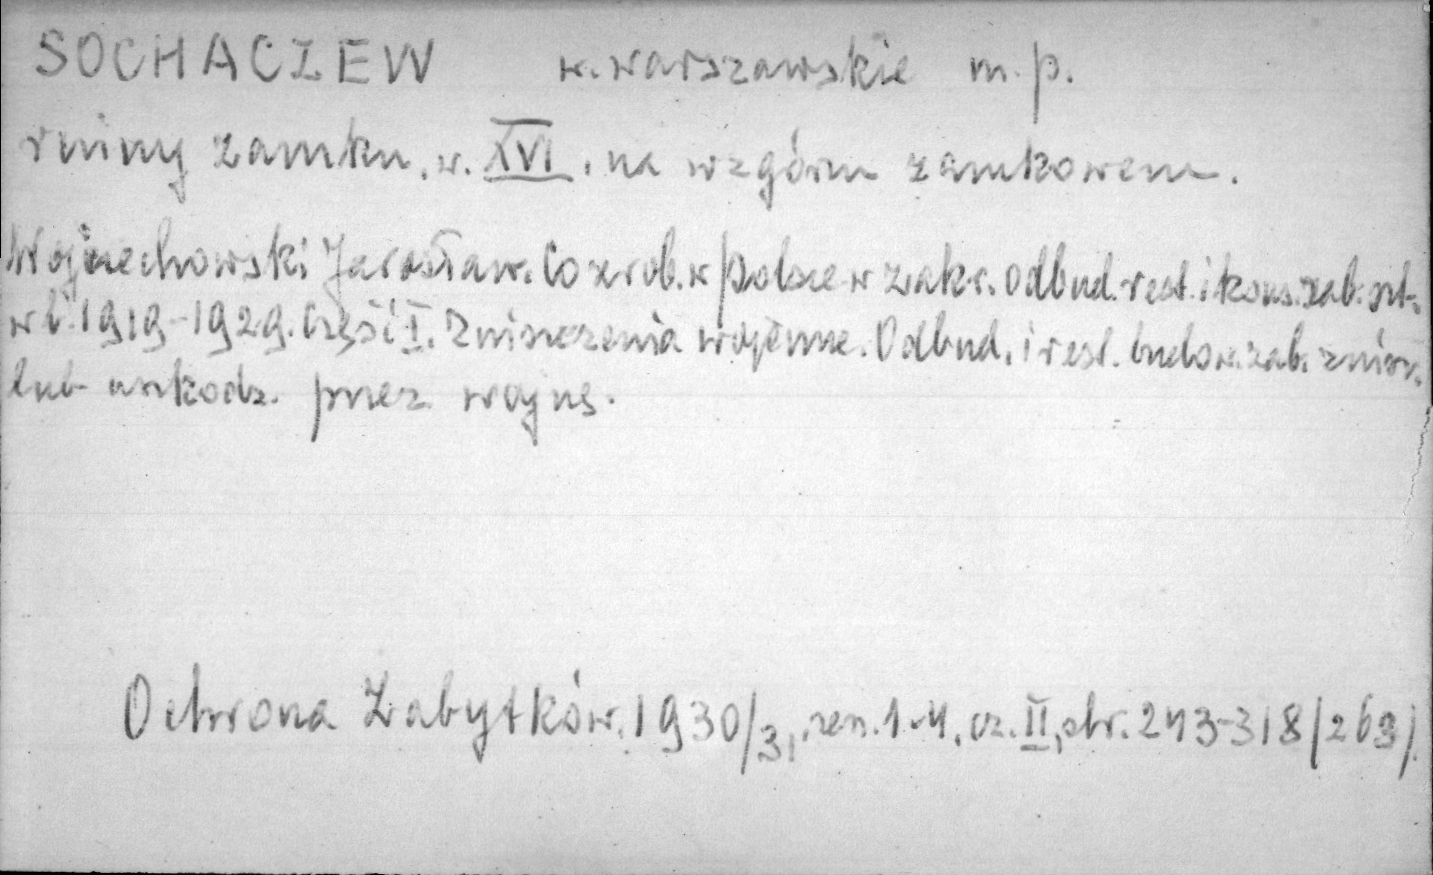 SOCHACZEW w. warszawskie m. p.
ruiny zamku, w. XVI. na wzgórzu zamkowem.
Wojciechowski Jarosław. Co zrob. w Polsce w zakr. odbud. rest. i kons. zab. szt.
w l. 1919-1929. Część I. Zniszczenia wojenne. Odbud. i rest. budow. zab. zniszcz.
lub uszkodz. przez wojnę.
Ochrona Zabytków. 1930/3, zesz. 1-4, cz. II, str. 243-318/263/